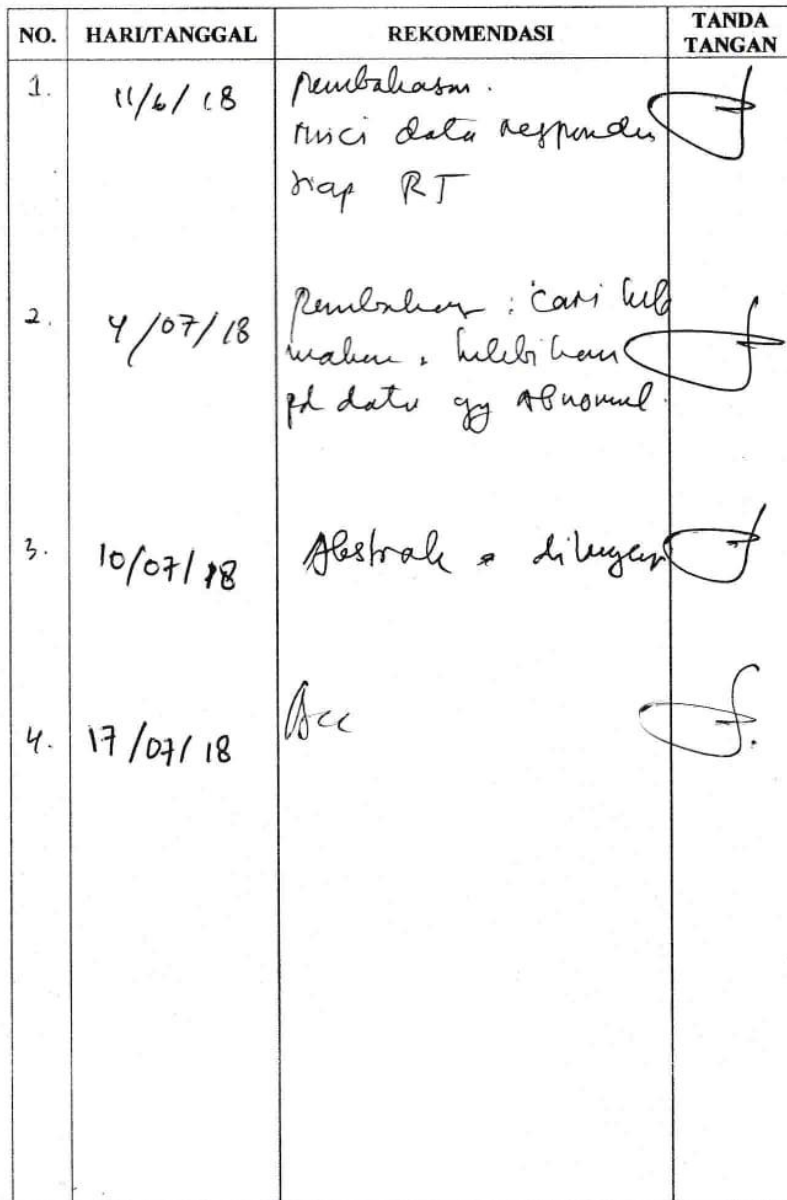 NO. HARI/TANGGAL REKOMENDASI TANDA TANGAN
1. 11/6/18 pembahasan.
rinci data responden
tiap RT
2. 4/07/18 Pembahasan : cari hub
pd data yg Abnormal.
3. 10/07/18 Abstrak
4. 17/07/18 Acc